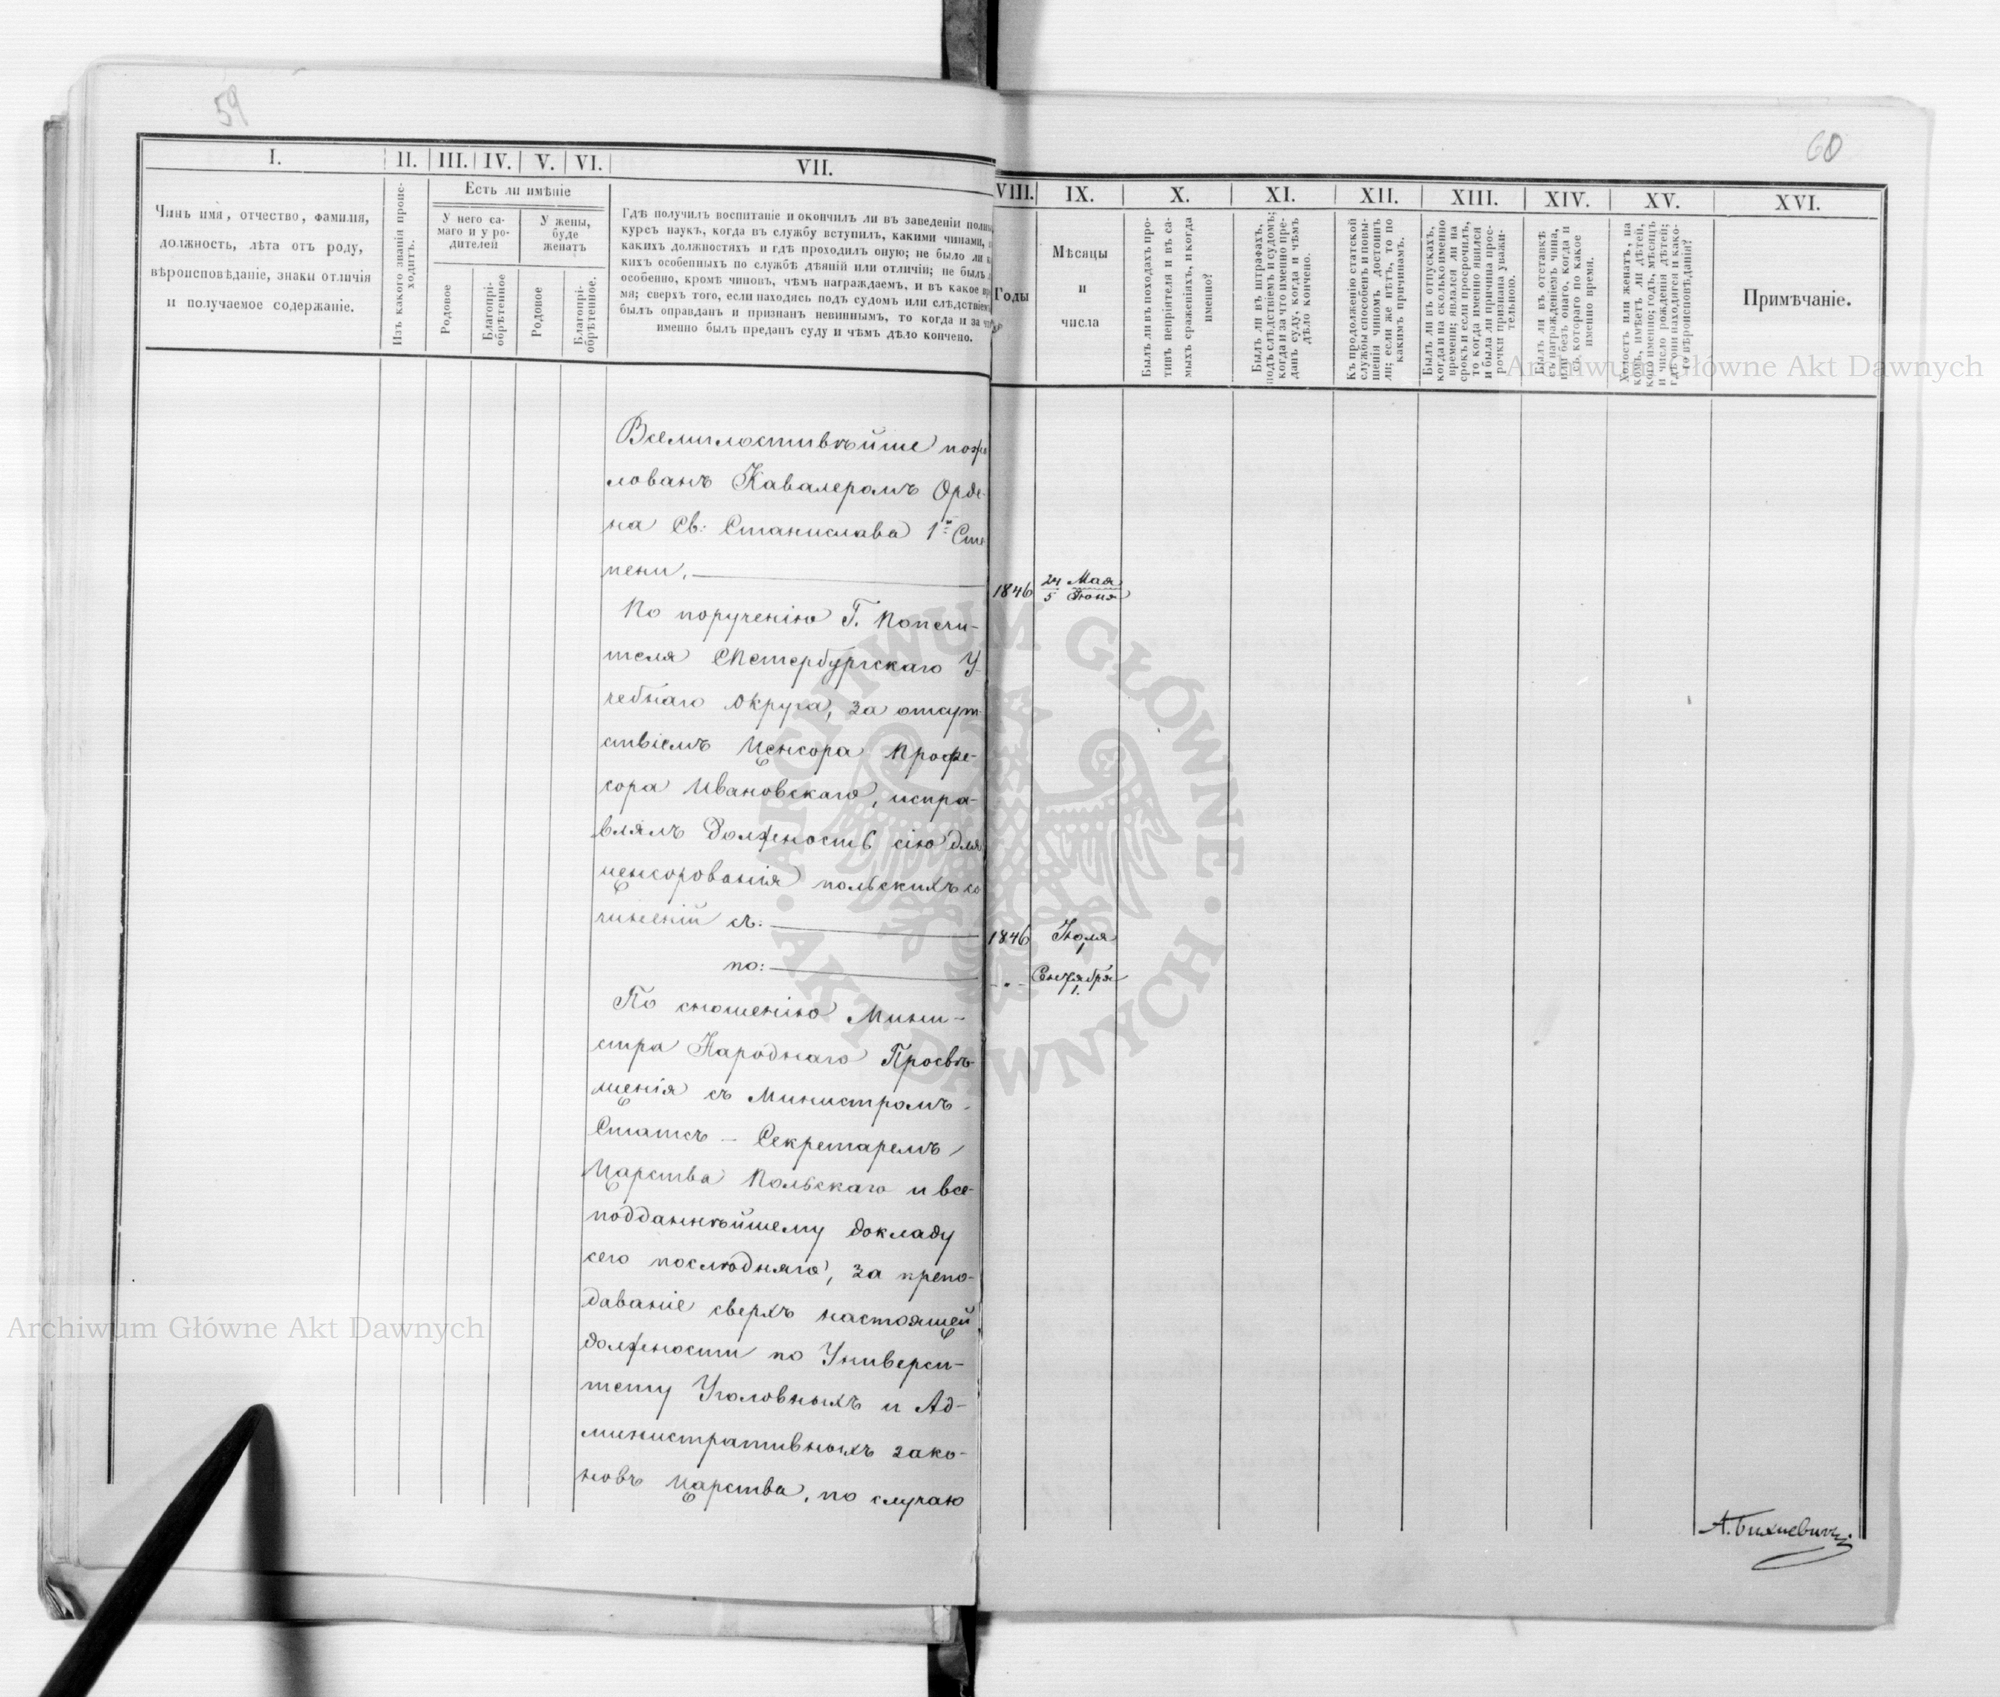 59
60
I.
II.
III.
IV.
V.
VI.
VII.
VIII.
IX.
X.
XI.
XII.
XIII.
XIV.
XV.
XVI.
Чинъ имя, отчество, фамилія,
должность, лѣта отъ роду,
вѣроисповѣданіе, знаки отличія
и получаемое содержаніе.
Изъ какого званія проис-
ходитъ.
Есть ли имѣніе
У него са-
маго и у ро-
дителей
У жены,
буде
женатъ
Родовое
Благопрі-
обрѣтенное
Родовое
Благопрі-
обрѣтенное.
Гдѣ получилъ воспитаніе и окончилъ ли въ заведеніи полный
курсъ наукъ, когда въ службу вступилъ, какими чинами,
какихъ должностяхъ и гдѣ проходилъ оную; не было ли
кихъ особенныхъ по службѣ дѣяній или отличій; не былъ
особенно, кромѣ чиновъ, чѣмъ награждаемъ, и въ какое вре
мя; сверхъ того, если находясь подъ судомъ или слѣдствіемъ
былъ оправданъ и признанъ невиннымъ, то когда и за что
именно былъ преданъ суду и чѣмъ дѣло кончено.
Годы
Мѣсяцы
и
числа
Былъ ли въ походахъ про-
тивъ непріятеля и въ са-
мыхъ сраженіяхъ, и когда
именно?
Былъ ли въ штрафахъ,
подъ слѣдствіемъ и судомъ;
когда и за что именно пре-
данъ суду, когда и чѣмъ
дѣло кончено.
Къ продолженію статской
службы способенъ и повы-
шенія чиномъ достоинъ
ли; если же нѣтъ, то по
какимъ причинамъ.
Былъ ли въ отпускахъ,
когда и на сколько именно
времени; явился ли на
срокъ и если просрочилъ,
то когда именно явился
и была ли причина прос-
рочки признана уважи-
тельною.
Былъ ли въ отставкѣ
съ награжденіемъ чина,
или безъ онаго, когда и
съ котораго по какое
именно время.
Холостъ или женатъ, на
комъ, имѣетъ ли дѣтей,
кого именно; годъ, мѣсяцъ
и число рожденія дѣтей;
гдѣ они находятся и како-
го вѣроисповѣданія?
Примѣчаніе.
Всемилостивѣйше пожа
лованъ Кавалеромъ Орде-
на Св: Станислава 1й Сте
пени.
1846 24 Мая
5 Іюня
По порученію Г. Попечи-
теля СПетербургскаго У-
чебнаго Округа, за отсут
ствіемъ Ценсора Профе-
сора Ивановскаго, испра-
влялъ должность сію для
ценсорованія польскихъ со
чиненій съ: 1846 Іюля
1
по: Сентября
1.
По сношенію Мини-
стра Народнаго Просвѣ-
щенія съ Министромъ-
Статсъ-Секретаремъ
Царства Польскаго и все-
подданнѣйшему докладу
сего послѣдняго, за препо-
даваніе сверхъ настоящей
должности по Универси-
тету Уголовныхъ и Ад-
министративныхъ зако-
новъ Царства, по случаю
Archiwum Główne Akt Dawnych
Archiwum Główne Akt Dawnych
ARCHIWUM GŁÓWNE
AKT DAWNYCH